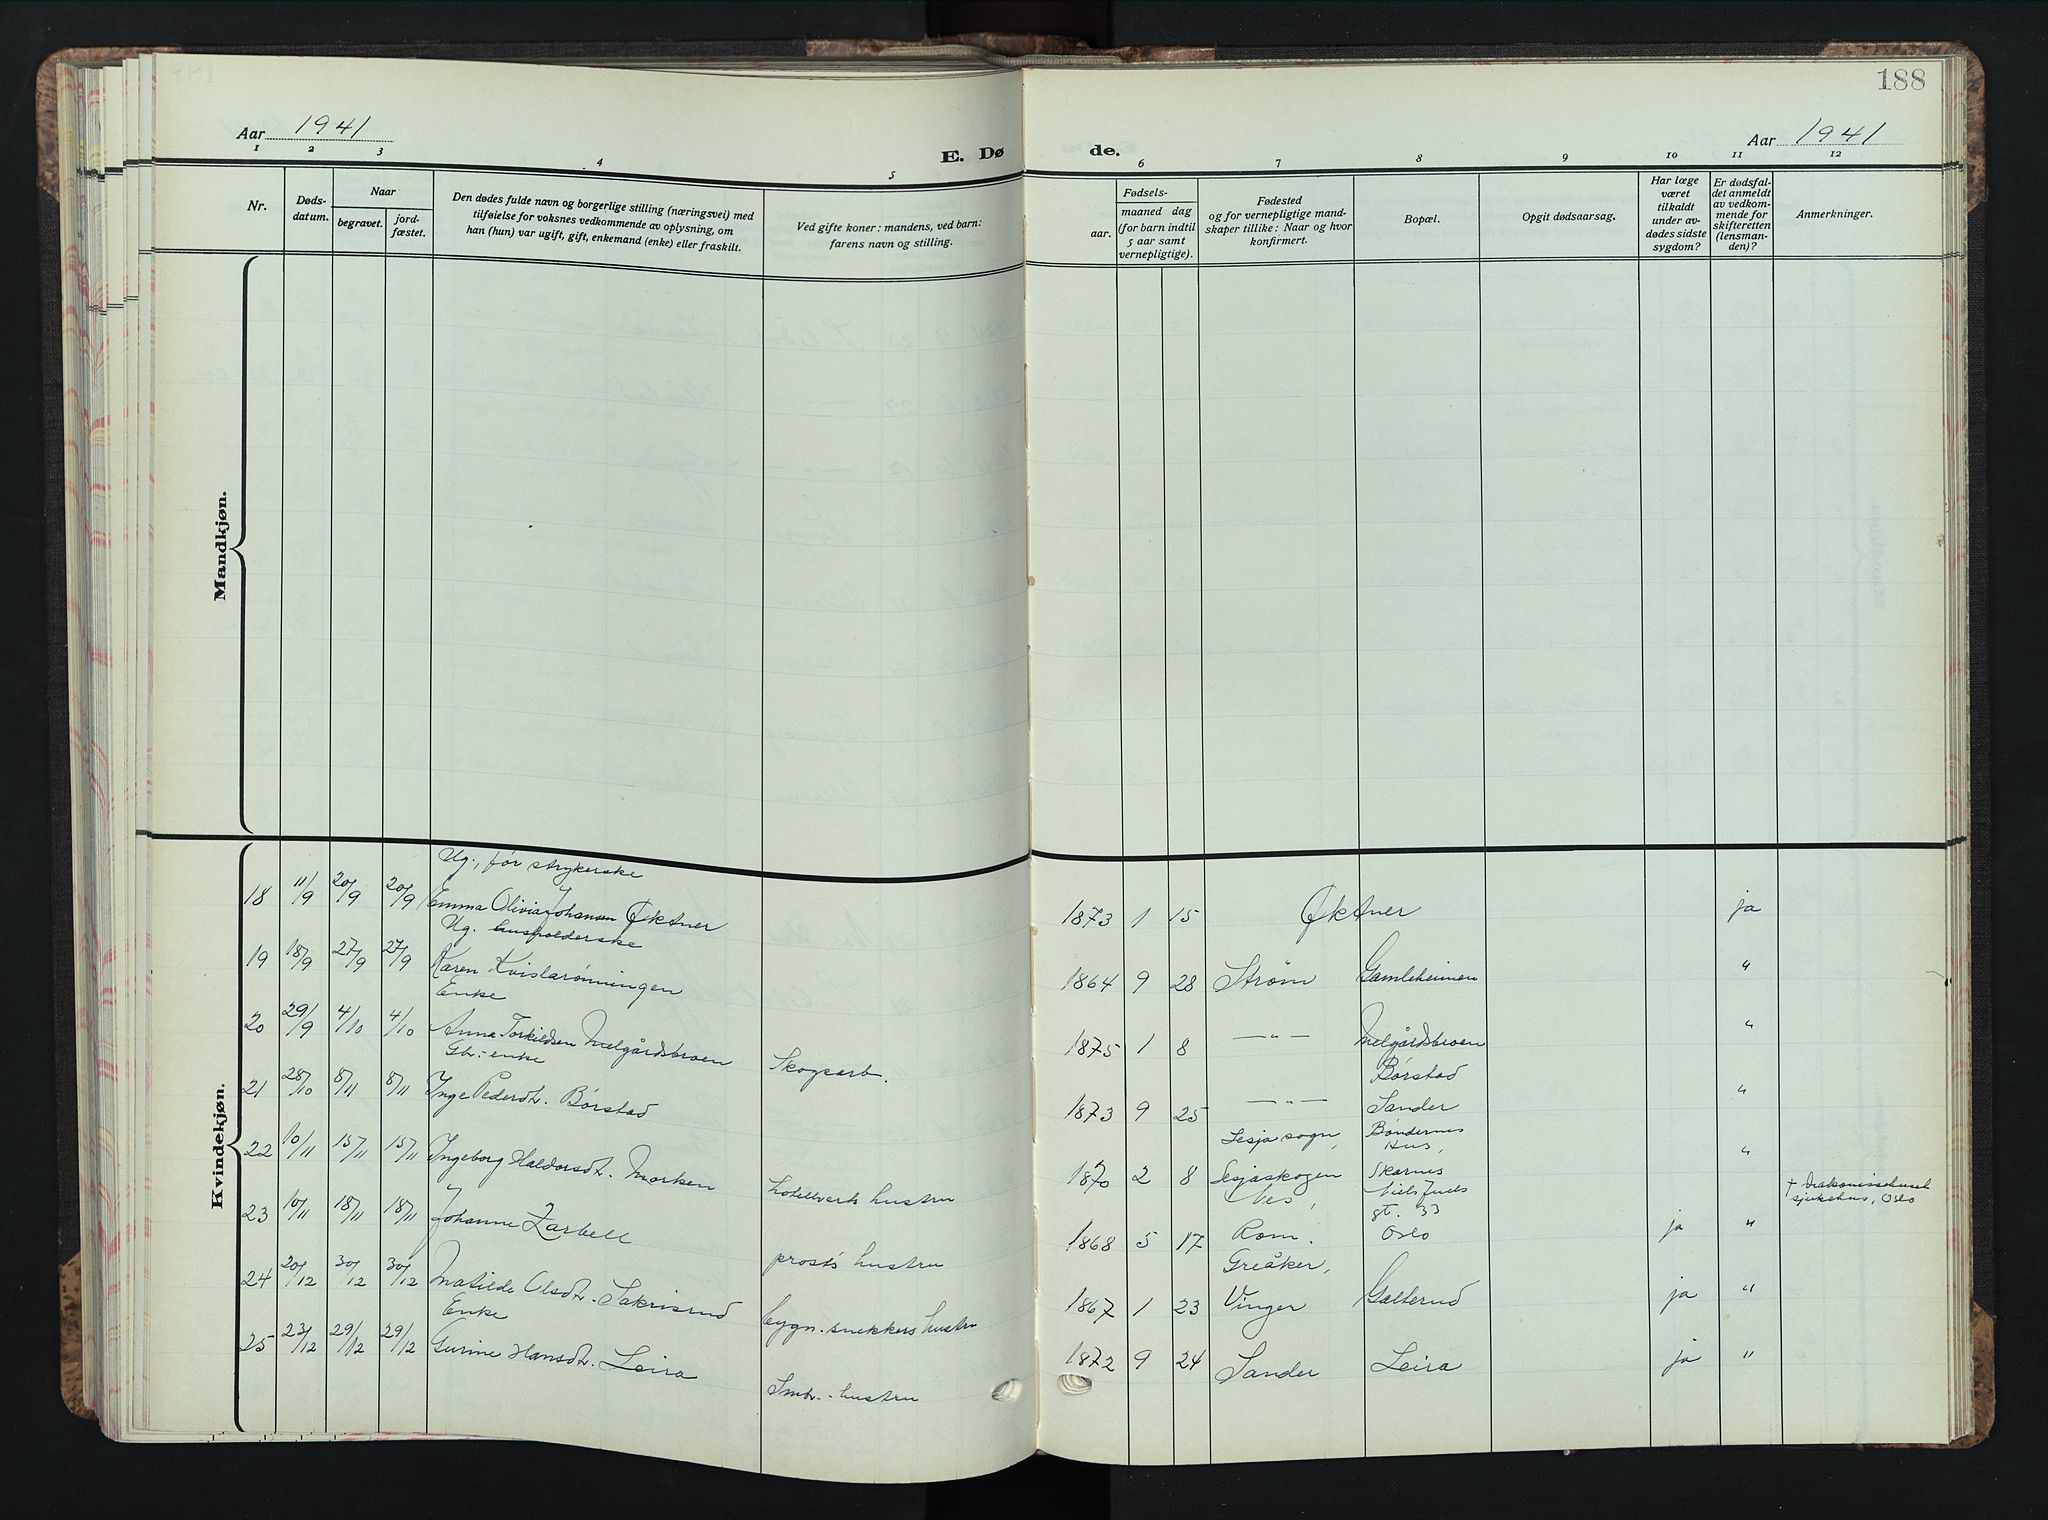 188
Aar 1941
E. Dø
de.
Aar 1941
1 2 3 4 5 6 7 8 9 10 11 12
Nr.
Døds-
datum.
Naar
begravet.
jord-
fæstet.
Den dødes fulde navn og borgerlige stilling (næringsvei) med
tilføielse for voksnes vedkommende av oplysning, om
han (hun) var ugift, gift, enkemand (enke) eller fraskilt.
Ved gifte koner: mandens, ved barn:
farens navn og stilling.
Fødsels-
aar.
maaned dag
(for barn indtil
5 aar samt
vernepligtige).
Fødested
og for vernepligtige mand-
skaper tillike: Naar og hvor
konfirmert.
Bopæl.
Opgit dødsaarsag.
Har læge
været
tilkaldt
under av-
dødes sidste
sygdom?
Er dødsfal-
det anmeldt
av vedkom-
mende for
skifteretten
(lensman-
den)?
Anmerkninger.
Mandkjøn.
Kvindekjøn.
Ug., før strykerske
18 11/9 20/9 20/9 Emma Olivia Johansen Øktner 1873 1 15 Øktner ja
Ug. husholderske
19 18/9 27/9 27/9 Karen Kvislarønningen 1864 9 28 Strøm Gamleheimen "
Enke
20 29/9 4/10 4/10 Anna Torkildsen Melgårdsbroen Skogsarb. 1875 1 8 —"— Melgårdsbroen "
Gbr.-enke
21 28/10 8/11 8/11 Inge Pedersdt. Børstad 1873 9 25 —"— Børstad
Sander "
22 10/11 15/11 15/11 Ingeborg Haldorsdt. Morken hotellverts hustru 1870 2 8 Lesja sogn,
Lesjaskogen Bøndernes
Hus,
Skarnes "
23 10/11 18/11 18/11 Johanne Zarbell prosts hustru 1868 5 17 Nes,
Rom. Niels Juels
gt. 33
Oslo ja "
sjukehus, Oslo
24 20/12 30/12 30/12 Matilde Olsdt. Sakrisrud bygn.snekkers hustru 1867 1 23 Greåker,
Vinger Galterud ja "
Enke
25 23/12 29/12 29/12 Gurine Hansdt. Leira Smbr.-hustru 1872 9 24 Sander Leira ja "